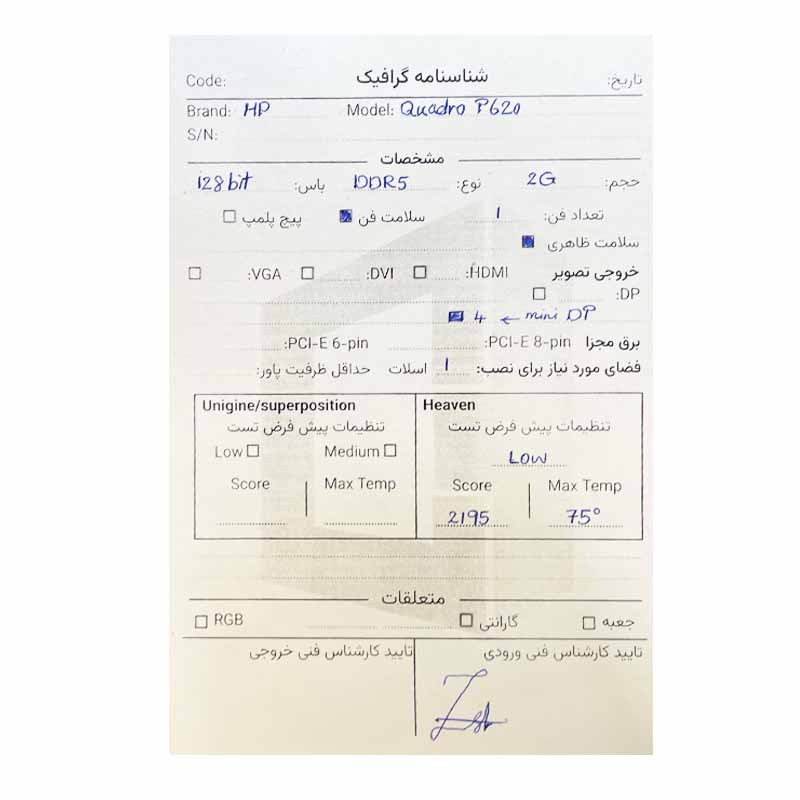 شناسنامه گرافیک
تاریخ: Code:
Brand: HP Model: Quadro P620
S/N:
مشخصات
حجم: 2G نوع: DDR5 باس: 128bit
تعداد فن: 1 سلامت فن ☑ پیچ پلمپ ☐
سلامت ظاهری ☑
خروجی تصویر HDMI: ☐ DVI: ☐ VGA: ☐
DP: ☐
mini DP → 4 ☑
برق مجزا PCI-E 8-pin: PCI-E 6-pin:
فضای مورد نیاز برای نصب: 1 اسلات حداقل ظرفیت پاور:
Unigine/superposition Heaven
تنظیمات پیش فرض تست تنظیمات پیش فرض تست
Low ☐ Medium ☐ Low
Score Max Temp Score Max Temp
2195 75°
متعلقات
جعبه ☐ گارانتی ☐ RGB ☐
تایید کارشناس فنی ورودی تایید کارشناس فنی خروجی